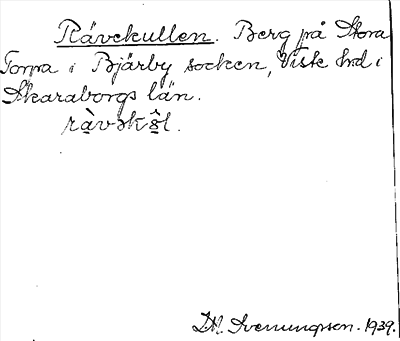 Rävekullen. Berg på Stora
Torpa i Bjärby socken, Viste hrd i
Skaraborgs län.
Svenungsson. 1939.